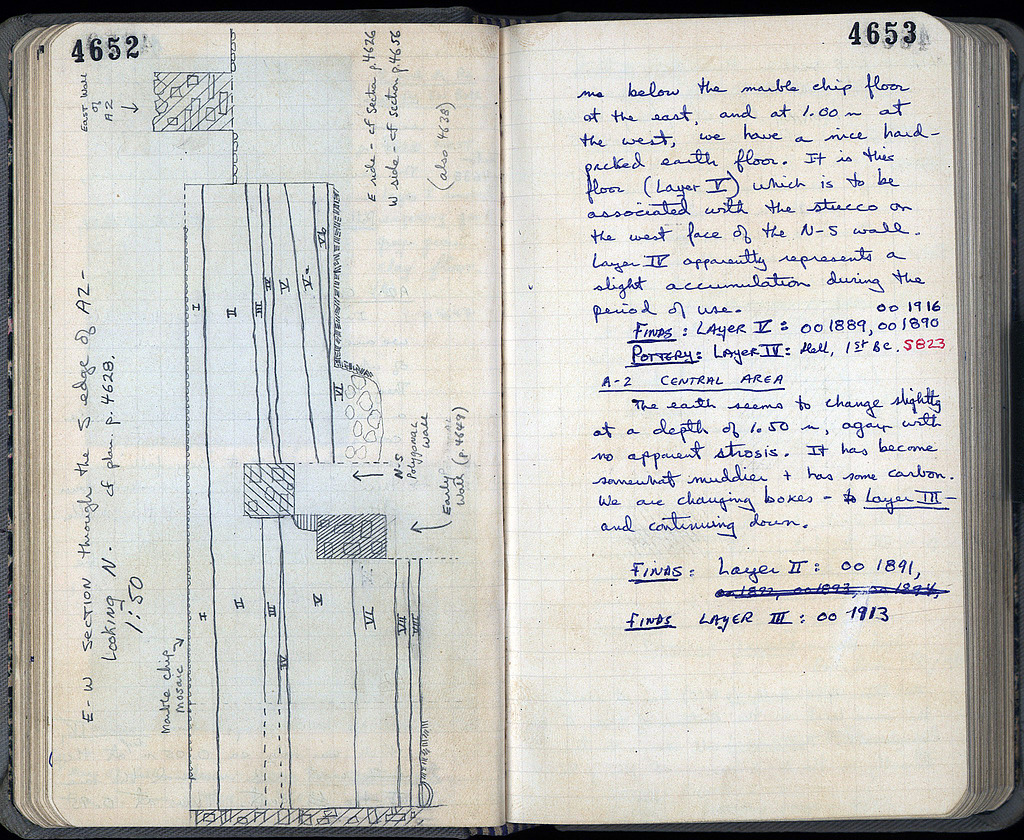 4652
East Wall
of
A2
E side - cf Section p.4626
W side - cf Section p.4656
(also 4638)
E-W Section through the S edge of A2-
Looking N. cf plan p. 4628.
1:50
I
II
III
IV
V
Va
Vb
VI
N-S
Polygonal
Wall
Early
Wall (p.4649)
Marble chip
mosaic
I
II
III
IV
V
VI
VII
VIII
4653
me below the marble chip floor
at the east, and at 1.00 m at
the west, we have a nice hard-
packed earth floor. It is this
floor (Layer V) which is to be
associated with the stucco on
the west face of the N-S wall.
Layer IV apparently represents a
slight accumulation during the
period of use. 00 1916
Finds: Layer V: 00 1889, 00 1890
Pottery: Layer IV: Hell, 1st BC. 5823
A-2 CENTRAL AREA
The earth seems to change slightly
at a depth of 1.50 m, again with
no apparent strosis. It has become
somewhat muddier + has some carbon.
We are changing boxes - to Layer III -
and continuing down.
Finds: Layer II: 00 1891,
00 1892, 00 1893, 00 1894,
Finds Layer III: 00 1913